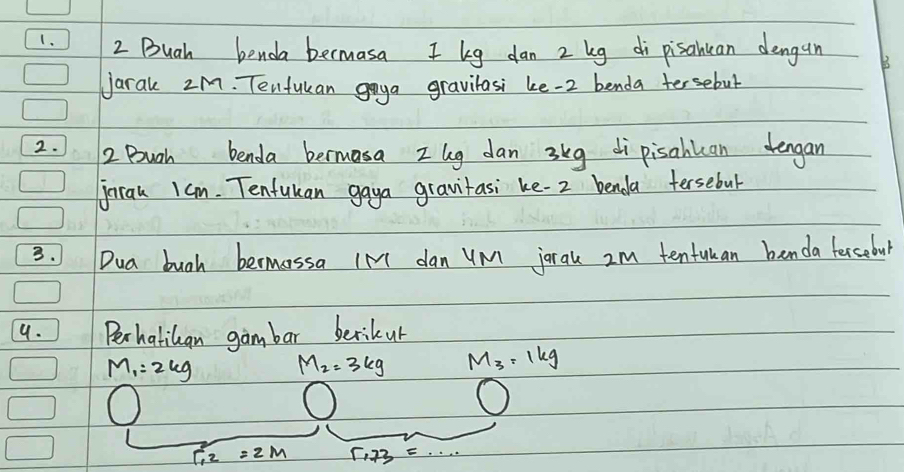 1. 2 Buah benda bermasa I kg dan 2 kg di pisahkan dengan
jarak 2M. Tentukan gaya gravitasi ke-2 benda tersebut
2. 2 Buah benda bermasa 2 kg dan 3kg di pisahkan dengan
jarak 1cm. Tentukan gaya gravitasi ke-2 benda tersebut
3. Dua buah bermassa 1M dan 4M jarak 2M tentukan benda tersebut
4. Perhatikan gambar berikut
M1=2kg M2=3kg M3=1kg
r12 =2M r,23 = ....